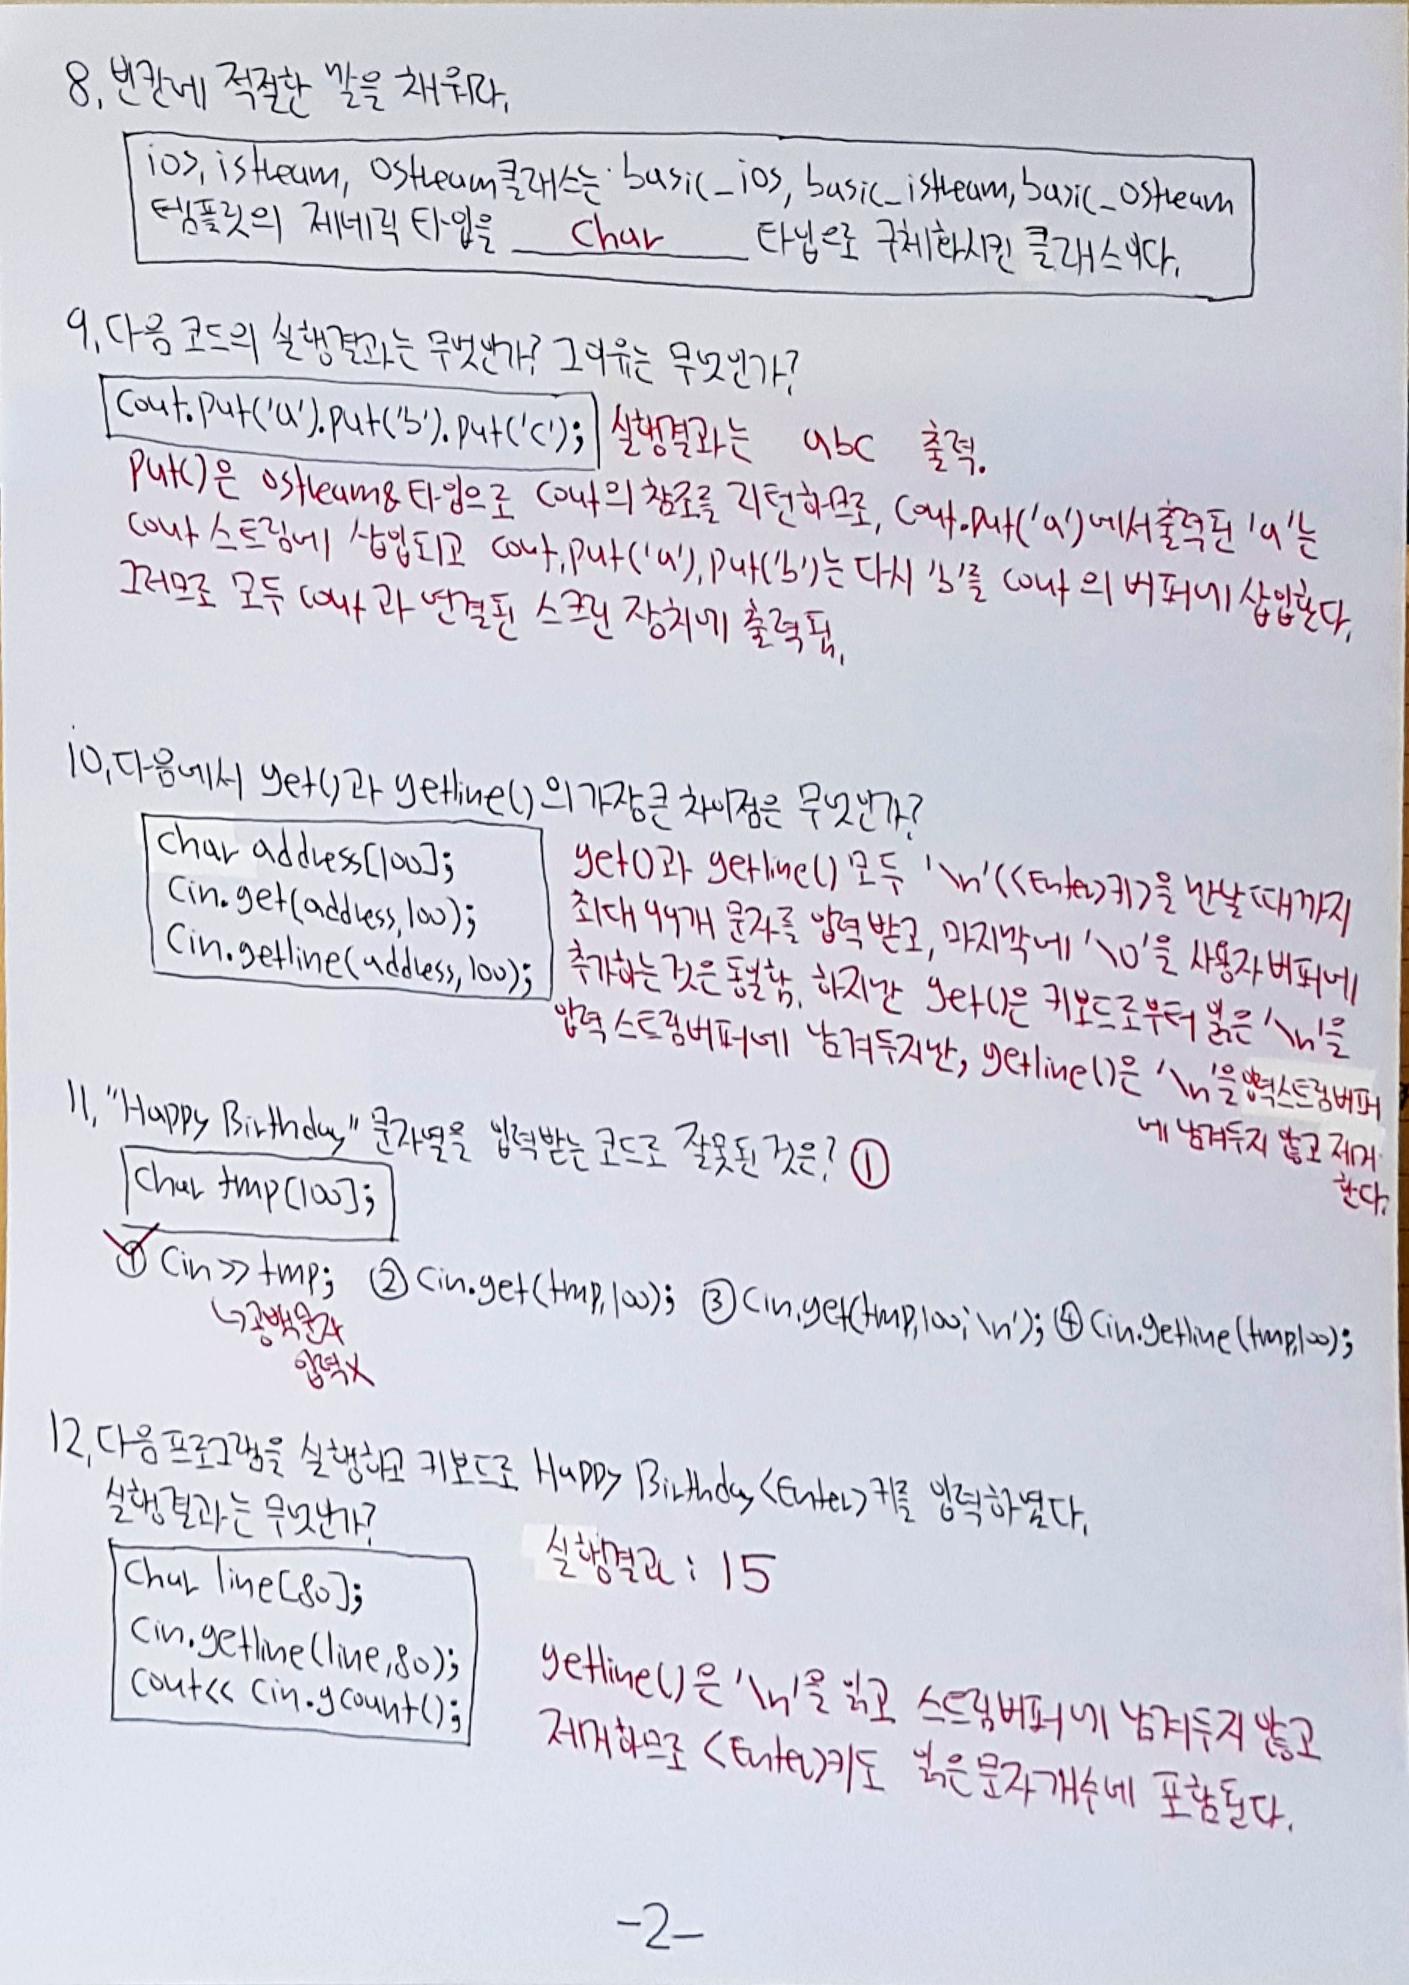 8. 빈칸에 적절한 말을 채워라.
ios, istream, ostream클래스는 basic_ios, basic_istream, basic_ostream
템플릿의 제네릭 타입을 char 타입으로 구체화시킨 클래스이다.
9. 다음 코드의 실행결과는 무엇인가? 그 이유는 무엇인가?
cout.put('a').put('b').put('c'); 실행결과는 abc 출력.
put()은 ostream& 타입으로 cout의 참조를 리턴하므로, cout.put('a')에서 출력된 'a'는
cout 스트림에 삽입되고 cout.put('a').put('b')는 다시 'b'를 cout의 버퍼에 삽입한다.
그러므로 모두 cout과 연결된 스크린 장치에 출력됨.
10. 다음에서 get()과 getline()의 가장 큰 차이점은 무엇인가?
char address[100];
cin.get(address,100);
cin.getline(address,100);
get()과 getline() 모두 '\n'(<Enter>키)을 만날 때까지
최대 99개 문자를 입력 받고, 마지막에 '\0'을 사용자 버퍼에
추가하는 것은 동일함. 하지만 get()은 키보드로부터 읽은 '\n'을
입력 스트림버퍼에 남겨두지만, getline()은 '\n'을 입력스트림버퍼
에 남겨두지 않고 제거
한다.
11. "Happy Birthday" 문자열을 입력받는 코드로 잘못된 것은? ①
char tmp[100];
① cin >> tmp; ② cin.get(tmp,100); ③ cin.get(tmp,100,'\n'); ④ cin.getline(tmp,100);
↳공백문자
입력X
12. 다음 프로그램을 실행하고 키보드로 Happy Birthday<Enter>키를 입력하였다.
실행결과는 무엇인가?
char line[80];
cin.getline(line,80);
cout<< cin.gcount();
실행결과 : 15
getline()은 '\n'을 읽고 스트림버퍼에 남겨두지 않고
제거하므로 <Enter>키도 읽은 문자 개수에 포함된다.
-2-